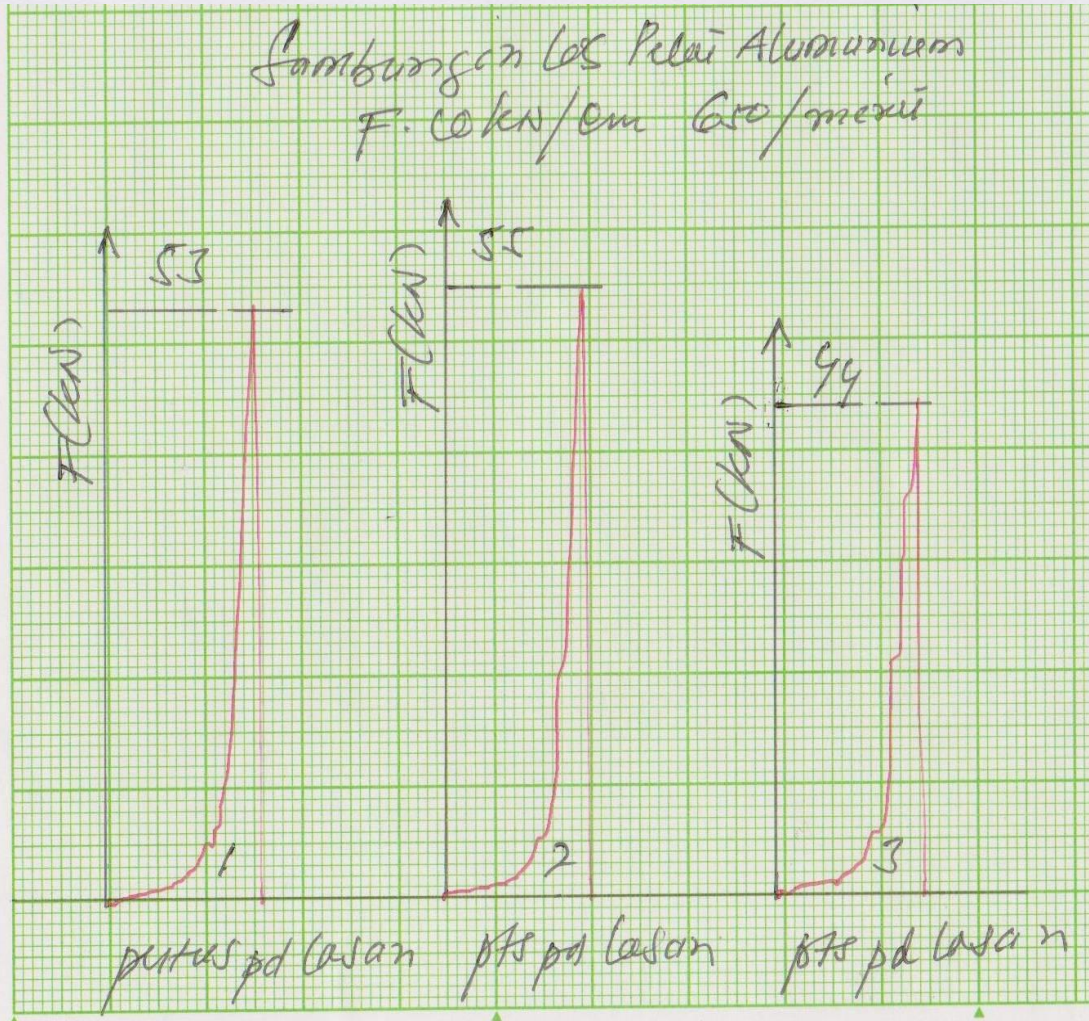 Sambungan Las Pelat Alumunium
F. 10 kN/cm 650/menit
53
F(kN)
1
putus pd Lasan
55
F(kN)
2
pts pd Lasan
44
F(kN)
3
pts pd Lasan